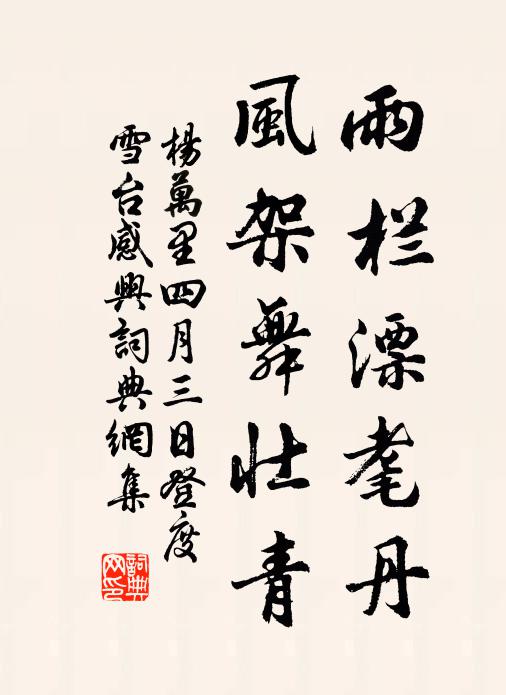 雨栏漂耄丹
風架舞壮青
楊萬里四月三日登度
雪台感興詞典網集
詞典
网印